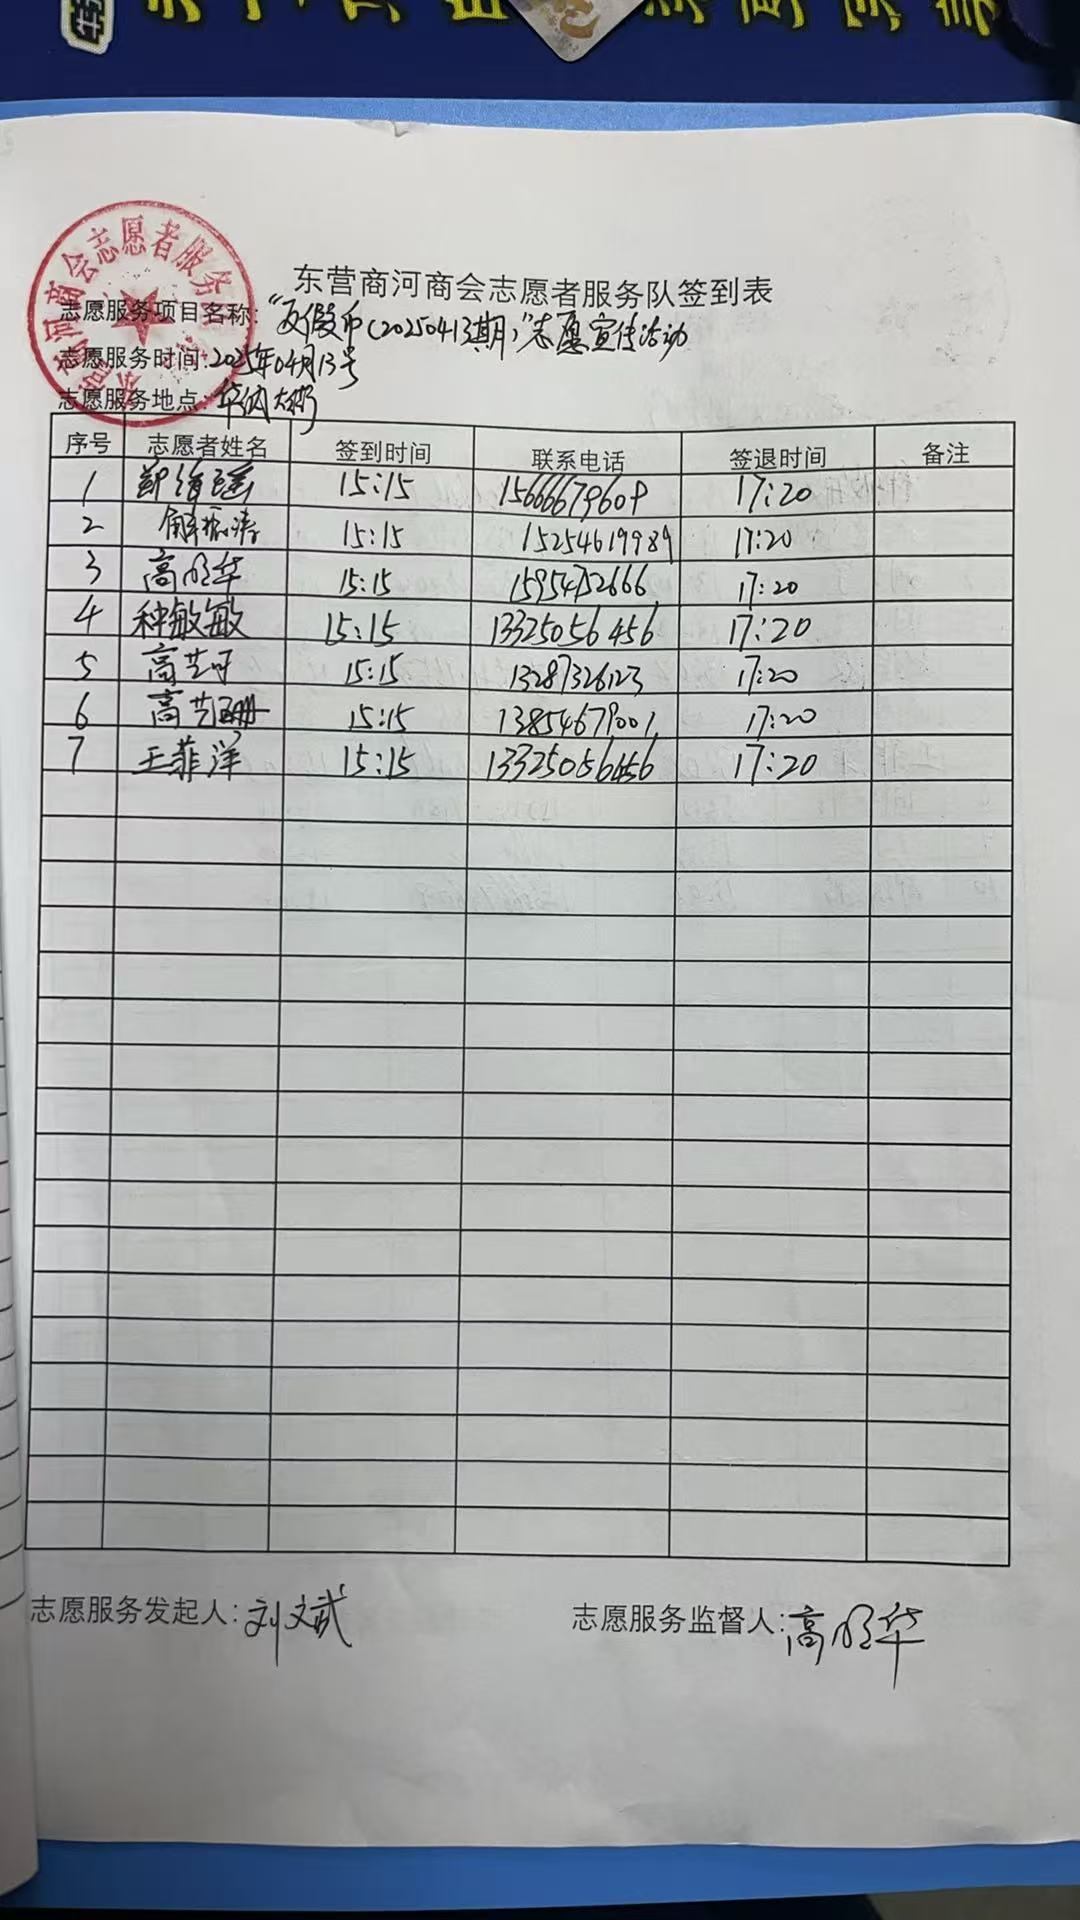 东营商河商会志愿者服务队签到表
志愿服务项目名称:“反假币(20250413期)”志愿宣传活动
志愿服务时间:2025年04月13号
志愿服务地点:华纳大厦
序号 志愿者姓名 签到时间 联系电话 签退时间 备注
1 郭绪瑶 15:15 15666679609 17:20
2 解振涛 15:15 15254619989 17:20
3 高明华 15:15 15954752666 17:20
4 种敏敏 15:15 13325056456 17:20
5 高艺可 15:15 13287326123 17:20
6 高艺珊 15:15 13854679001 17:20
7 王菲洋 15:15 13325056456 17:20
志愿服务发起人:刘文斌 志愿服务监督人:高明华